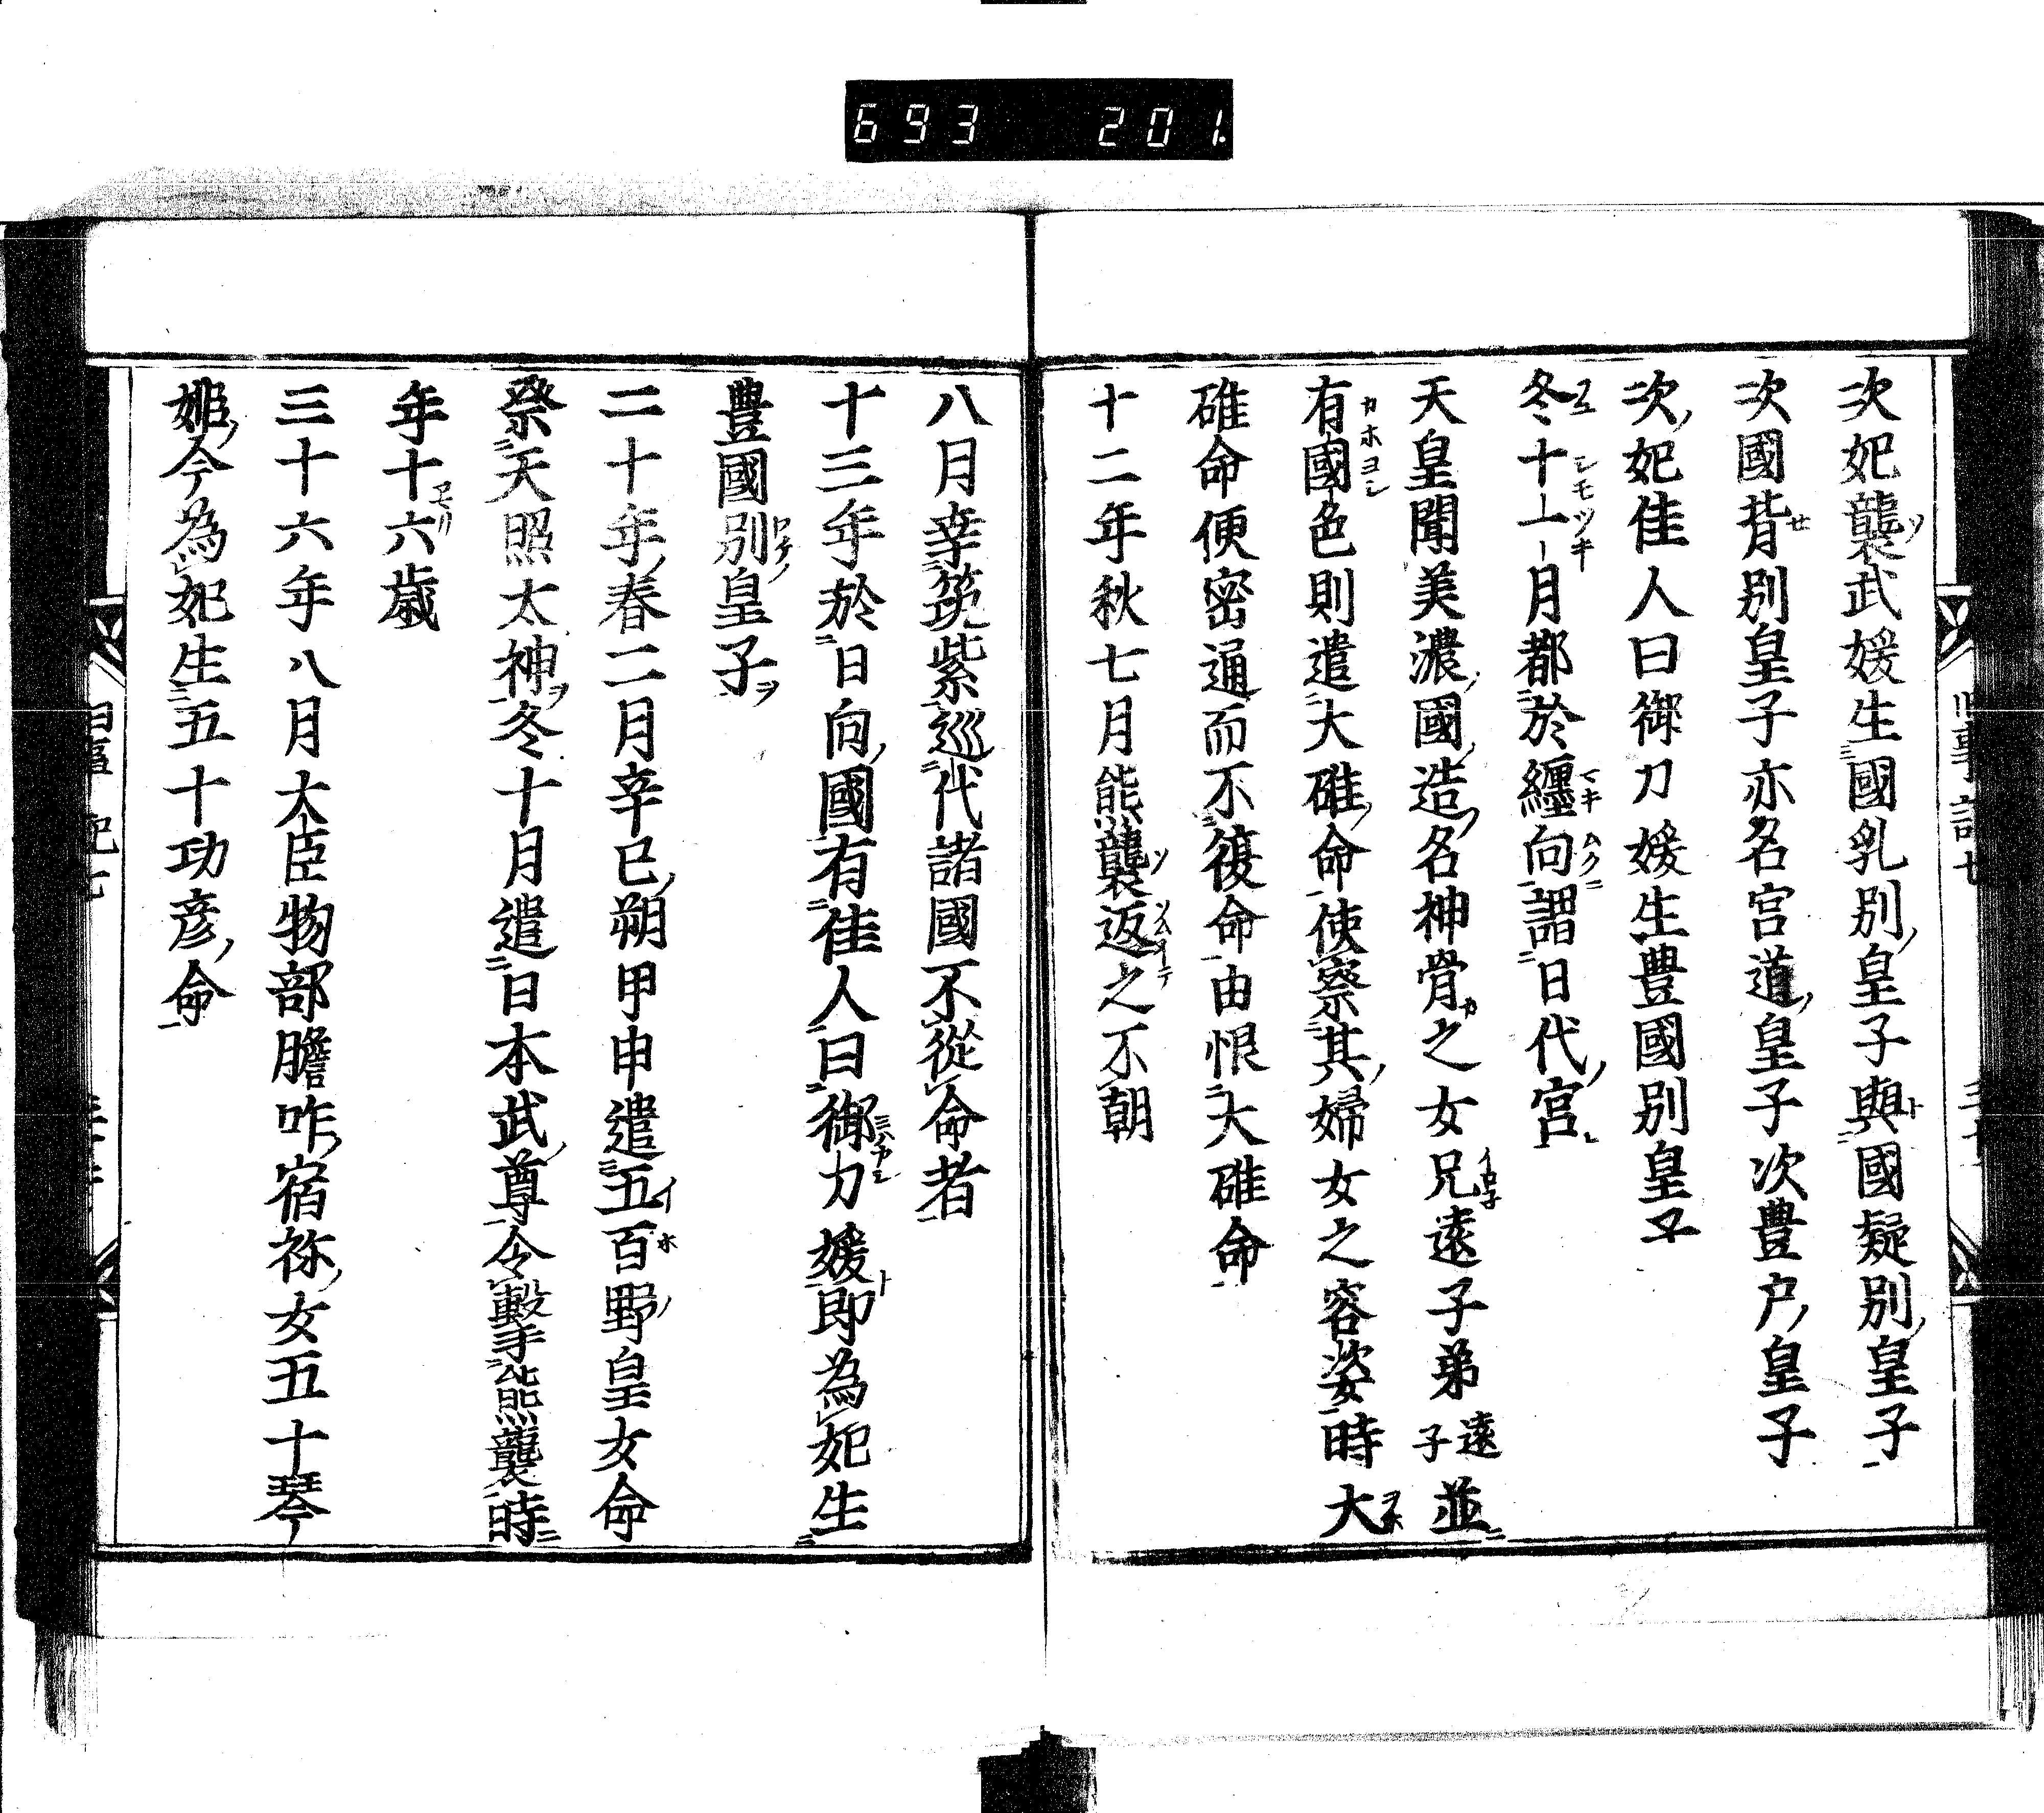 693 201
次妃襲武媛生國乳別皇子與國疑別皇子
次國背別皇子亦名宮道皇子次豊戸皇子
次妃佳人曰御刀媛生豊國別皇子
冬十一月都於纏向謂日代宮
天皇聞美濃國造名神骨之女兄遠子弟遠子並
有國色則遣大碓命使察其婦女之容姿時大
碓命便密通而不復命由恨大碓命
十二年秋七月熊襲返之不朝
八月幸筑紫巡代諸國不從命者
十三年於日向國有佳人曰御刀媛即為妃生
豊國別皇子
二十年春二月辛巳朔甲申遣五百野皇女命
祭天照太神冬十月遣日本武尊令擊熊襲時
年十六歲
三十六年八月大臣物部膽咋宿祢女五十琴
姫今為妃生五十功彦命